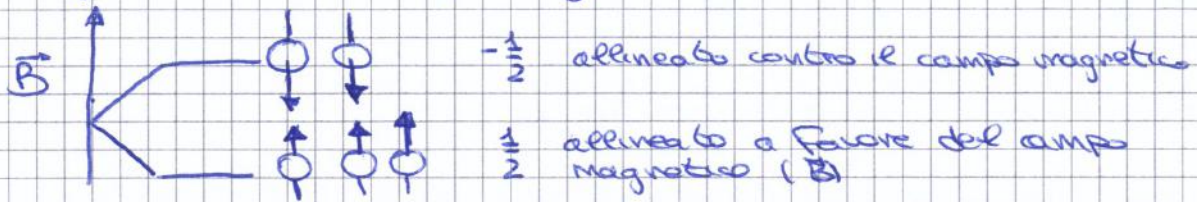 B⃗
-1/2 allineato contro il campo magnetico
1/2 allineato a favore del campo
magnetico (B)